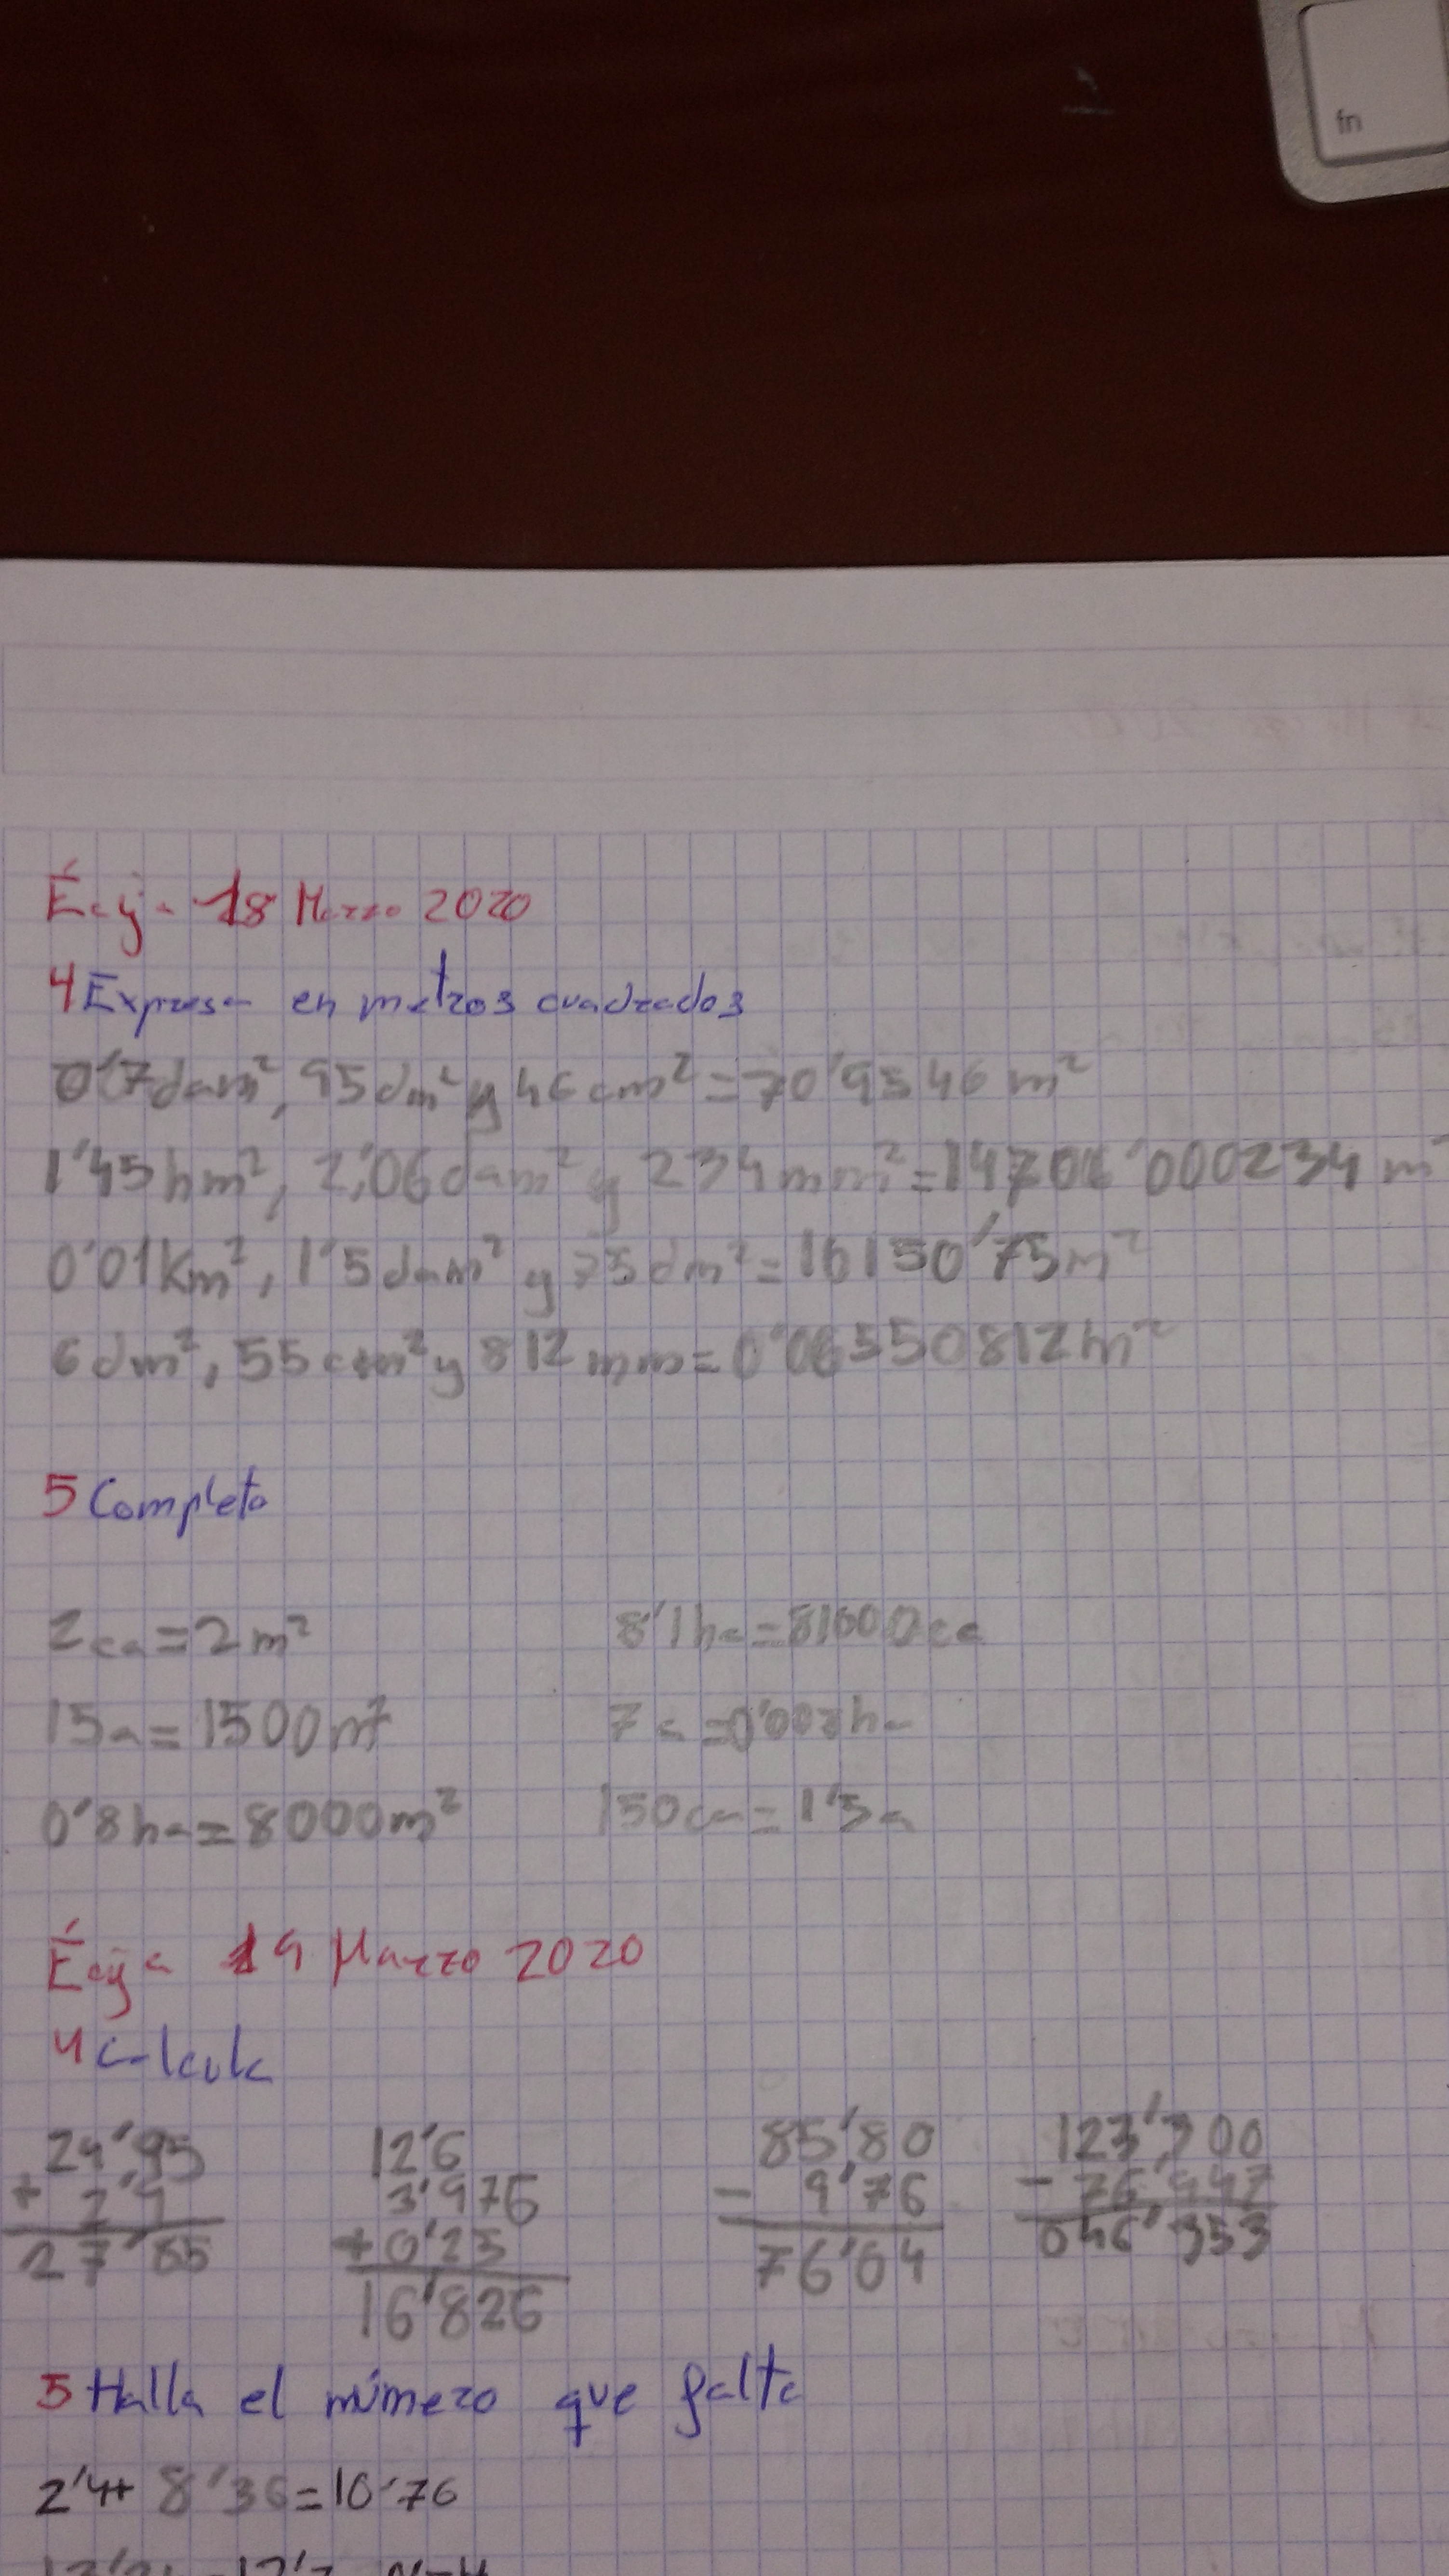 fn
Écija 18 Marzo 2020
4 Expresa en metros cuadrados
0'7dam², 95dm² y 46cm² = 70'9546 m²
1'45hm², 2'06dam² y 234mm² = 14706'000234 m²
0'01Km², 1'5dam² y 75dm² = 10150'75m²
6dm², 55cm² y 812mm = 0'06550812m²
5 Completa
2ca = 2m² 8'1ha = 81000ca
15a = 1500m² 7a = 0'007ha
0'8ha = 8000m² 150ca = 1'5a
Écija 19 Marzo 2020
4 Calcula
24'95 12'6 85'80 123'300
+ 2'9 3'976 - 9'76 - 76'947
27'85 + 0'25 76'04 046'353
16'826
5 Halla el número que falta
2'4+ 8'36=10'76